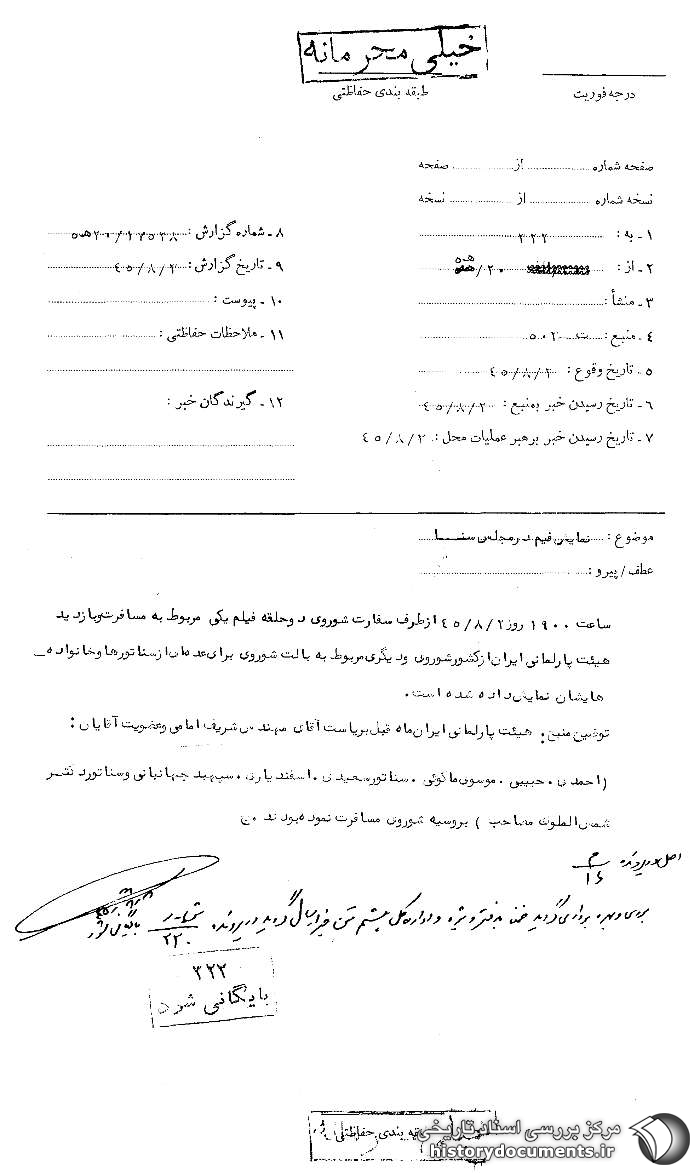 خیلی محرمانه
طبقه بندی حفاظتی
درجه فوریت
صفحه شماره از صفحه
نسخه شماره از نسخه
۱ - به : ۳۲۲
۲ - از : ۲۰/ﻫ۵
۳ - منشأ :
۴ - منبع : ۵۰۲
۵ - تاریخ وقوع : ۴۵/۸/۲
۶ - تاریخ رسیدن خبر بمنبع : ۴۵/۸/۲
۷ - تاریخ رسیدن خبر برهبر عملیات محل : ۴۵/۸/۲
۸ - شماره گزارش :
۹ - تاریخ گزارش : ۴۵/۸/۲
۱۰ - پیوست :
۱۱ - ملاحظات حفاظتی :
۱۲ - گیرندگان خبر :
موضوع : نمایش فیلم در مجلس سنا
عطف/ پیرو :
ساعت ۱۹۰۰ روز ۴۵/۸/۲ ازطرف سفارت شوروی دوحلقه فیلم یکی مربوط به مسافرت وبازدید
هیئت پارلمانی ایران از کشور شوروی ودیگری مربوط به بالت شوروی برای عده ای از سناتورها وخانواده
هایشان نمایش داده شده است.
توضیح منبع . هیئت پارلمانی ایران ماه قبل بریاست آقای مهندس شریف امامی وعضویت آقایان :
(احمدی . حبیبی . موسوی ماکوئی . سناتور سعیدی . اسفندیاری . سپهبد جهانبانی وسناتور دکتر
شمس الملوک مصاحب ) بروسیه شوروی مسافرت نموده بودند
اصل در پرونده
۱۶
۳۲۲
بایگانی شود
طبقه بندی حفاظتی
مرکز بررسی اسناد تاریخی
historydocuments.ir